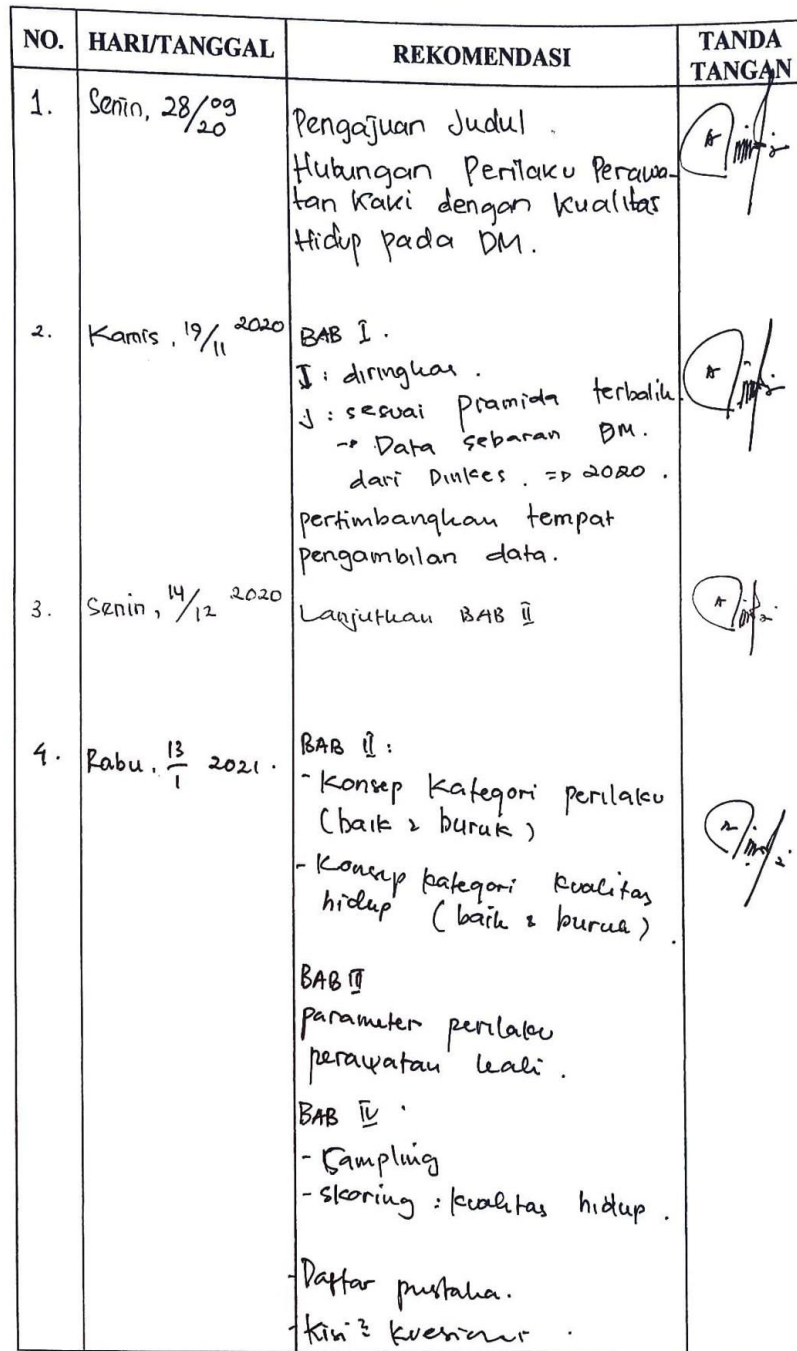 NO. HARI/TANGGAL REKOMENDASI TANDA TANGAN
1. Senin, 28/09 20
Pengajuan Judul.
Hubungan Perilaku Perawa-
tan Kaki dengan Kualitas
Hidup pada DM.
2. Kamis, 19/11 2020
BAB I.
I : diringkas.
J : sesuai pramida terbalik.
→ Data sebaran DM.
dari Dinkes. => 2020.
pertimbangkan tempat
pengambilan data.
3. Senin, 14/12 2020
Lanjutkan BAB II
4. Rabu, 13/1 2021.
BAB II :
- Konsep Kategori perilaku
(baik & buruk)
- Konsep kategori kualitas
hidup (baik & buruk).
BAB III
parameter perilaku
perawatan kaki.
BAB IV.
- Sampling
- skoring : kualitas hidup.
- Daftar pustaka.
- Kisi2 kuesioner.